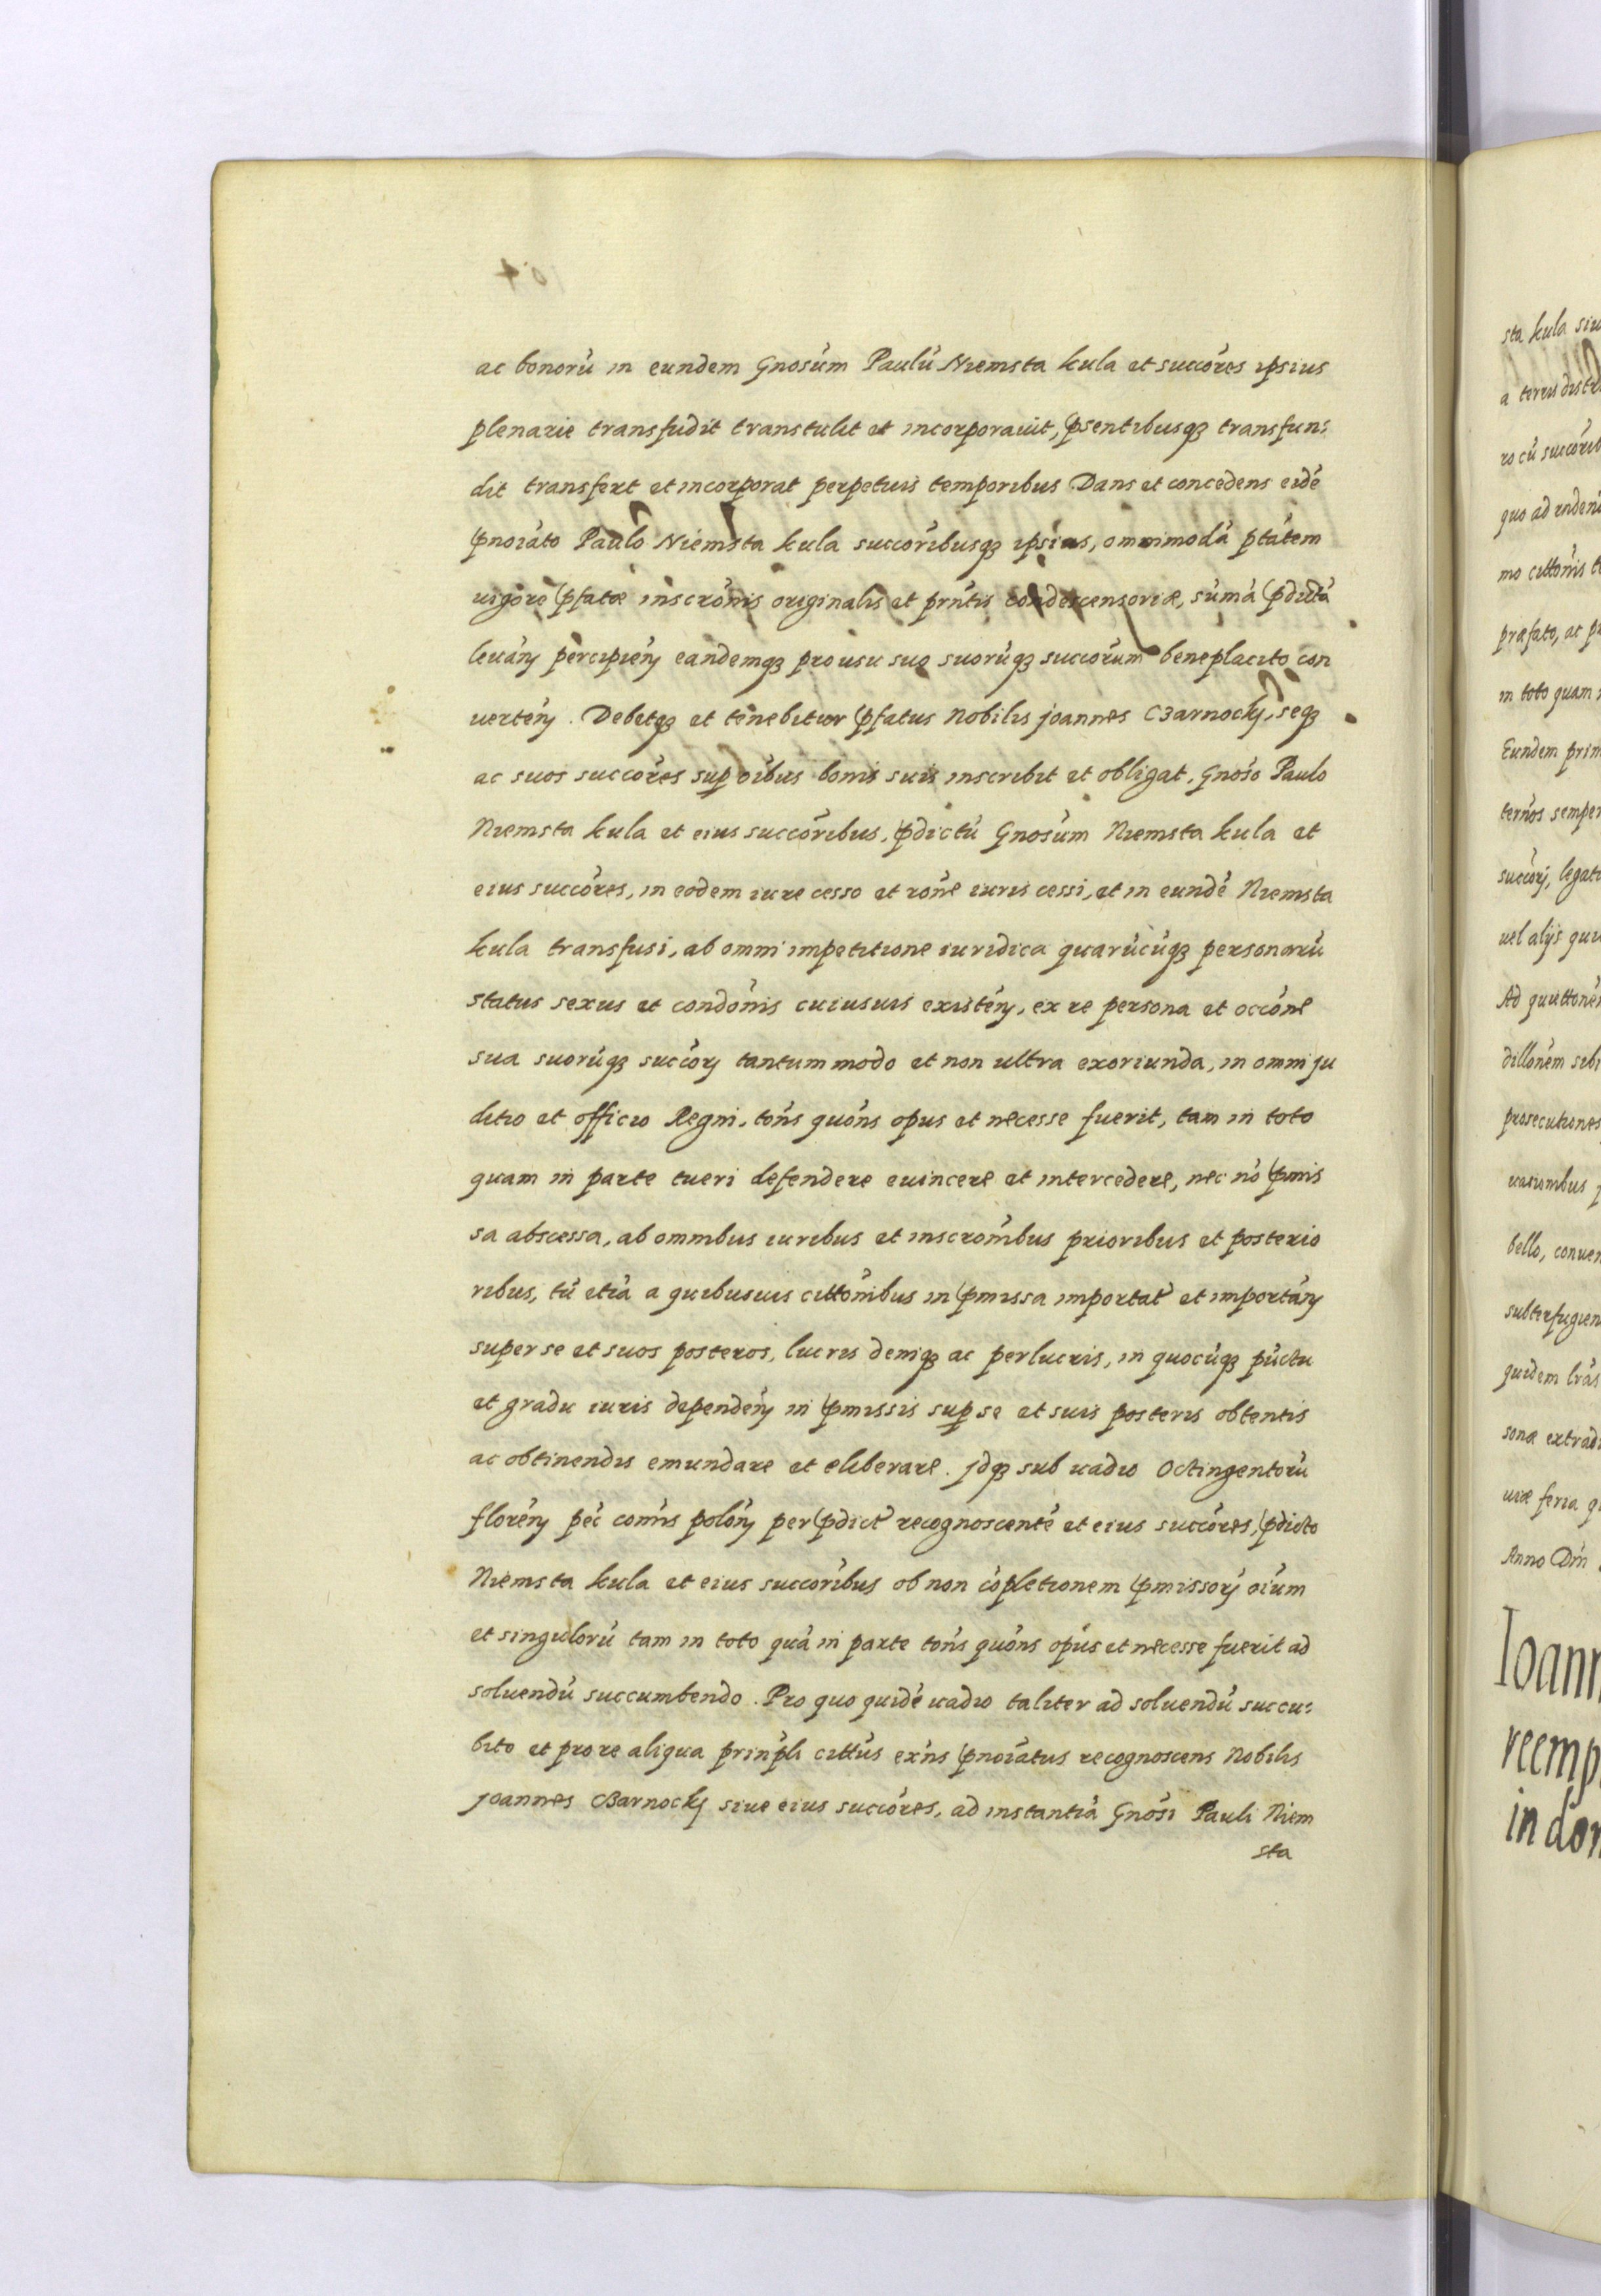 ac bonorū in eundem Gnosum Paulū Niemsta kula et succōres ipsius
plenarie transfudit transtulit et incorporauit, p̄sentibusq3 transfun:
dit transfert et incorporat perpetuis temporibus Dans et concedens eidē
p̄noīato Paulo Niemsta kula succōribusq3 ipsius, omnimodā ptātem
uigore p̄fatæ inscrōnis originalis et prn̄tis condescensoriæ, sūmā p̄dictā
leuān̄ percipien̄ eandemq3 pro usu suo suorūq3 succōrum beneplacito con
uerten̄. Debetq3 et tenebitur p̄fatus Nobilis Joannes Czarnockj, seq3
ac suos succōres sup oībus bonis suis inscribit et obligat, Gnōso Paulo
Niemsta kula et eius succōribus, p̄dictū Gnosum Niemsta kula et
eius succōres, in eodem iure cesso et rōne iuris cessi, et in eundē Niemsta
kula transfusi, ab omni impetitione iuridica quarūcūq3 personarū
status sexus et condōnis cuiusuis existen̄, ex re persona et occōne
sua suorūq3 succorȳ tantummodo et non ultra exoriunda, in omni ju
ditio et officio Regni, tōns quōns opus et necesse fuerit, tam in toto
quam in parte tueri defendere euincere et intercedere, nec nō p̄mis
sa abscessa, ab omnibus iuribus et inscrōnibus prioribus et posterio
ribus, tū etiā a quibusuis cittōnibus in p̄missa importat̄ et importān̄
super se et suos posteros, lucris deniq3 ac perlucris, in quocūq3 pūctu
et gradu iuris dependen̄ in p̄missis sup se et suis posteris obtentis
ac obtinendis emundare et eliberare. Jdq3 sub uadio Octingentorū
floren̄ pec̄ com̄is polon̄ per p̄dict̄ recognoscentē et eius succōres, p̄dicto
Niemsta kula et eius succōribus ob non cōpletionem p̄missorȳ oīum
et singulorū tam in toto quā in parte tōns quōns opus et necesse fuerit ad
soluendū succumbendo. Pro quo quidē uadio taliter ad soluendū succu:
bito et pro re aliqua prin̄pli cittūs ex̄ns p̄noīatus recognoscens Nobilis
Joannes Czarnockj siue eius succōres, ad instantiā Gnōsi Pauli Niem
sta
sta kula
a terris
ro cū
quo ad
mo cittōnis
præfato, ac
in toto quam
Eundem
ternos semper
uel alijs
Ad quittonē
dillonēm
prosecutiones
bello,
quidem lrās
sonæ
uiæ feria
Anno Dn̄i
Ioann
reemp
in don